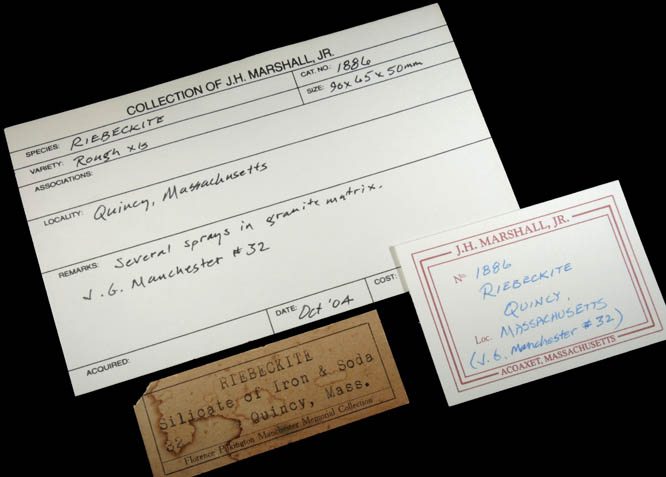 COLLECTION OF J.H. MARSHALL, JR.
SPECIES: RIEBECKITE
CAT. NO.: 1886
VARIETY: Rough xls
SIZE: 90x65x50mm
ASSOCIATIONS:
LOCALITY: Quincy, Massachusetts
REMARKS: Several sprays in granite matrix.
J. G. Manchester #32
ACQUIRED:
DATE: Oct '04
COST:
J.H. MARSHALL, JR.
No 1886
RIEBECKITE
QUINCY,
Loc. MASSACHUSETTS
(J. G. Manchester #32)
ACOAXET, MASSACHUSETTS
RIEBECKITE
Silicate of Iron & Soda
32 Quincy, Mass.
Florence Manchester Memorial Collection